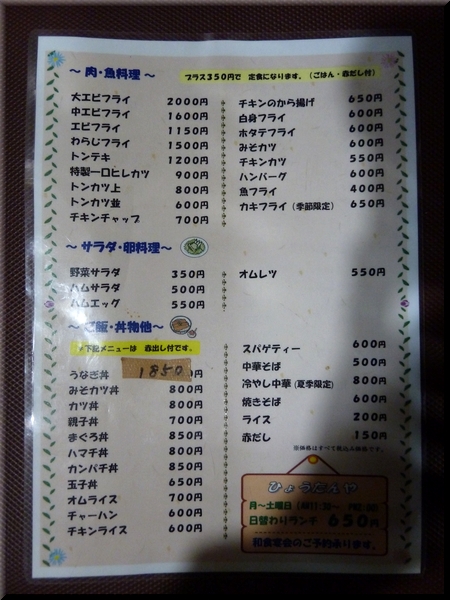 ～ 肉・魚料理 ～
プラス350円で 定食になります。(ごはん・赤だし付)
大エビフライ 2000円
中エビフライ 1600円
エビフライ 1150円
わらじフライ 1500円
トンテキ 1200円
特製一口ヒレカツ 900円
トンカツ上 800円
トンカツ並 600円
チキンチャップ 700円
チキンのから揚げ 650円
白身フライ 600円
ホタテフライ 600円
みそカツ 650円
チキンカツ 550円
ハンバーグ 600円
魚フライ 400円
カキフライ(季節限定) 650円
～ サラダ・卵料理 ～
野菜サラダ 350円
ハムサラダ 500円
ハムエッグ 550円
オムレツ 550円
～ ご飯・丼物他 ～
下記メニューは 赤出し付です。
うなぎ丼 1850円
みそカツ丼 800円
カツ丼 800円
親子丼 700円
まぐろ丼 850円
ハマチ丼 800円
カンパチ丼 850円
玉子丼 650円
オムライス 700円
チャーハン 600円
チキンライス 600円
スパゲティー 600円
中華そば 500円
冷やし中華(夏季限定) 800円
焼きそば 600円
ライス 200円
赤だし 150円
※価格はすべて税込み価格です。
ひょうたんや
月～土曜日 (AM11:30～ PM2:00)
日替わりランチ 650円
和食宴会のご予約承ります。